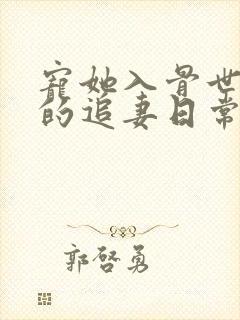 寵她入骨世
的追妻日常
郭啓勇